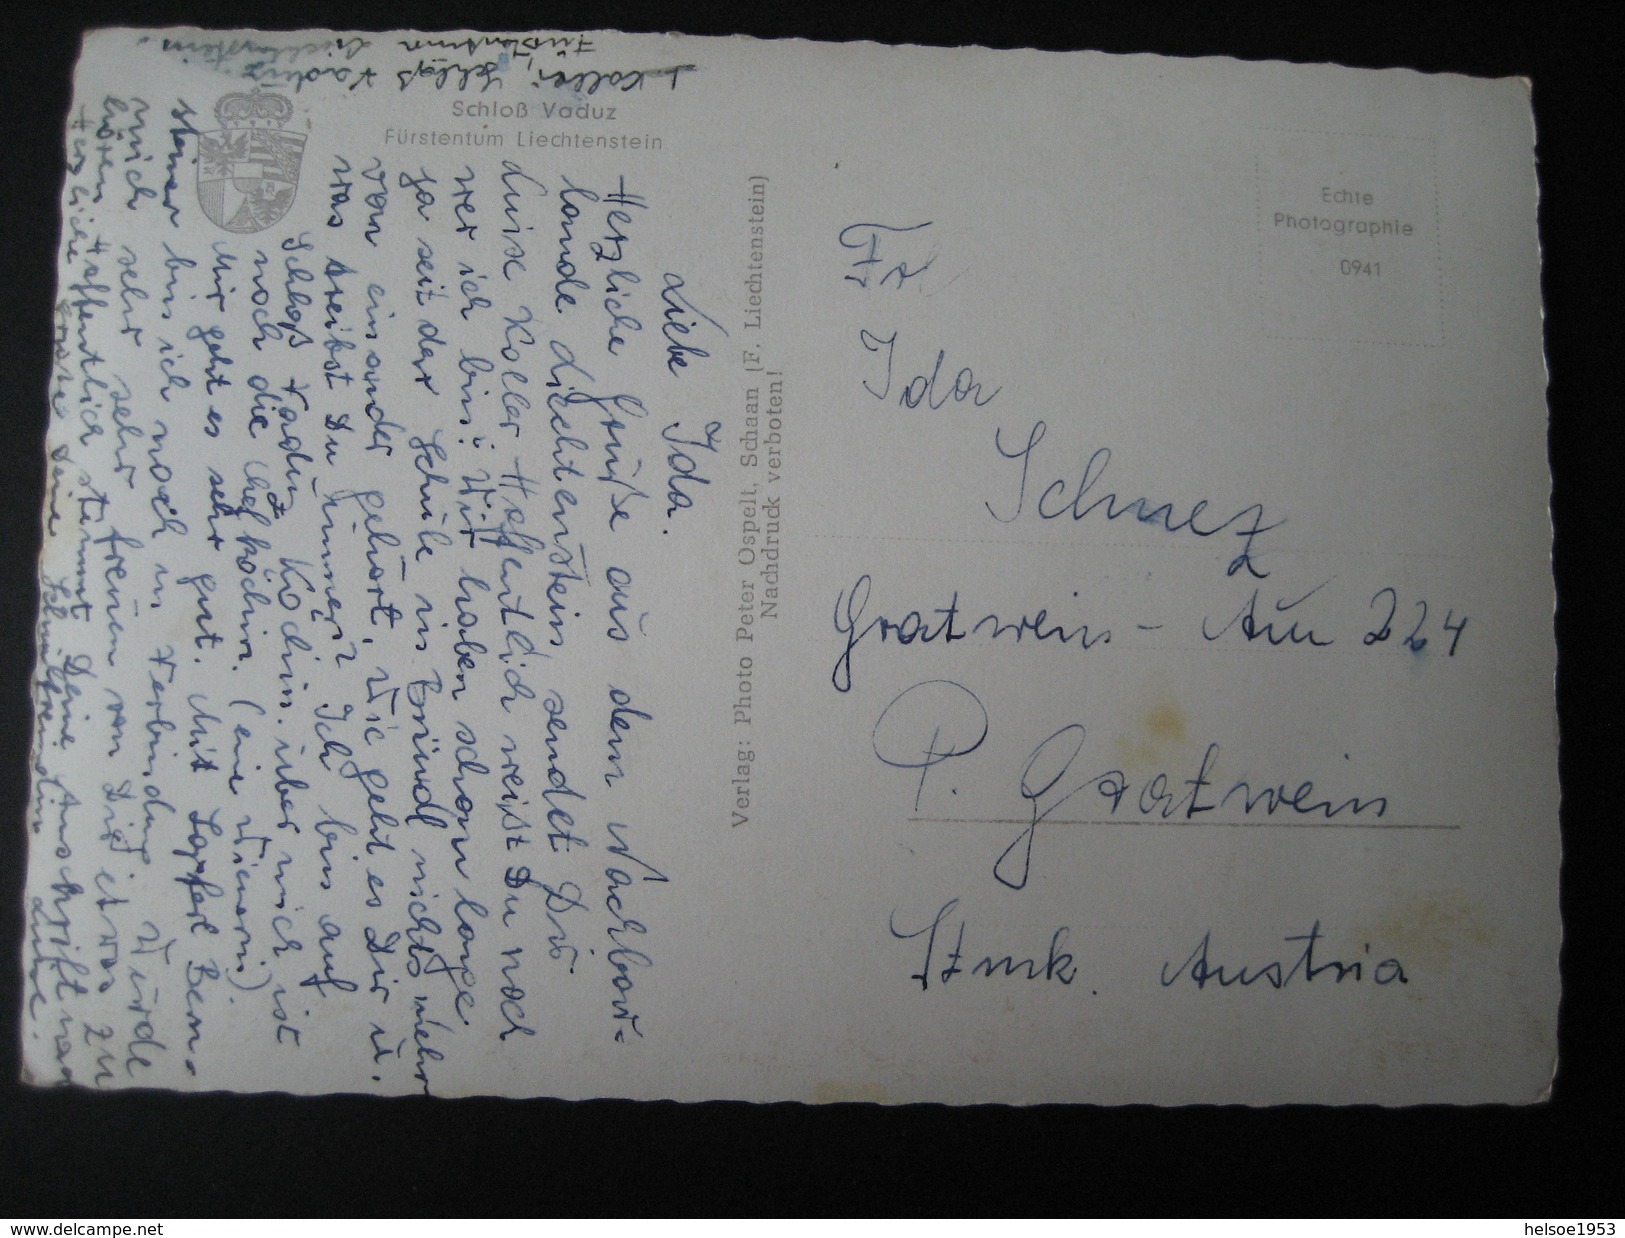 L. Koller, Schloß Vaduz
Fürstentum Liechtenstein.
Schloß Vaduz
Fürstentum Liechtenstein
Liebe Ida.
Herzliche Grüße aus dem Nachbar-
lande Liechtenstein sendet Dir
Luise Koller. Hoffentlich weißt Du noch
wer ich bin? Wir haben schon lange
ja seit der Schule in nichts mehr
von einander gehört. Wie geht es Dir u.
was treibst Du immer? Ich bin auf
Schloß Vaduz Köchin. über mich ist
noch die Chefköchin. (eine Wienerin)
Mir geht es sehr gut. Mit Ben-
steiner bin ich noch in Verbindung. Würde
mich sehr sehr freuen von Dir etwas zu
hören. Hoffentlich stimmt Deine Anschrift noch
Herzliche Grüße Deine Schulfreundin Luise.
Verlag: Photo Peter Ospelt, Schaan (F. Liechtenstein)
Nachdruck verboten!
Echte
Photographie
0941
Fr.
Ida
Schmez
Gratwein - Au 224
P. Gratwein
Stmk. Austria
www.delcampe.net
helsoe1953